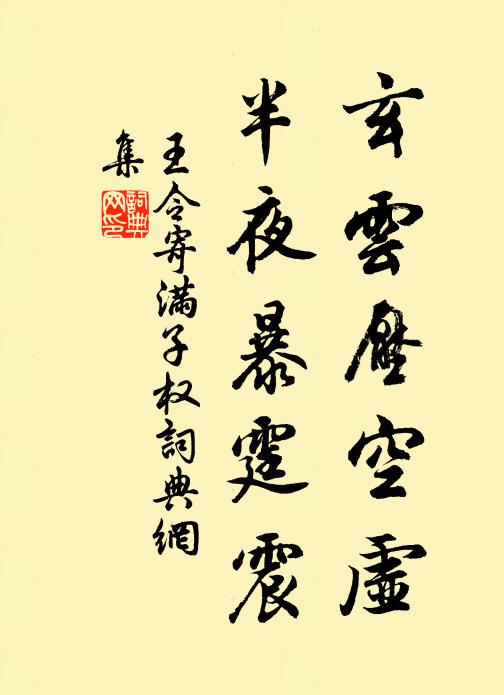 玄雲壓空虛
半夜暴霆震
王令寄滿子权詞典網
集
詞典網印